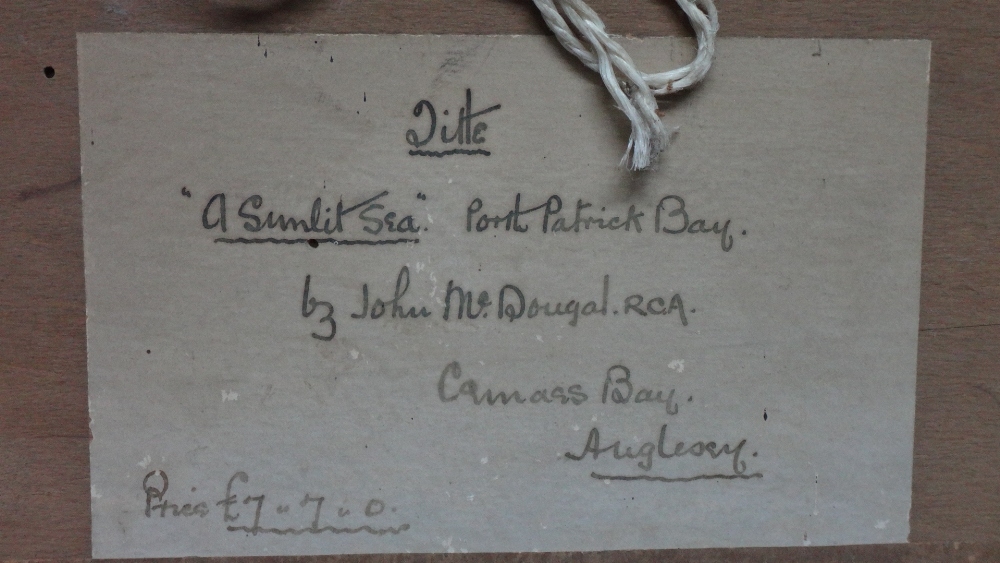 Title
"A Sunlit Sea". Port Patrick Bay.
by John Mc. Dougal. RCA.
Cemaes Bay.
Anglesey.
Price £7 " 7 " 0.